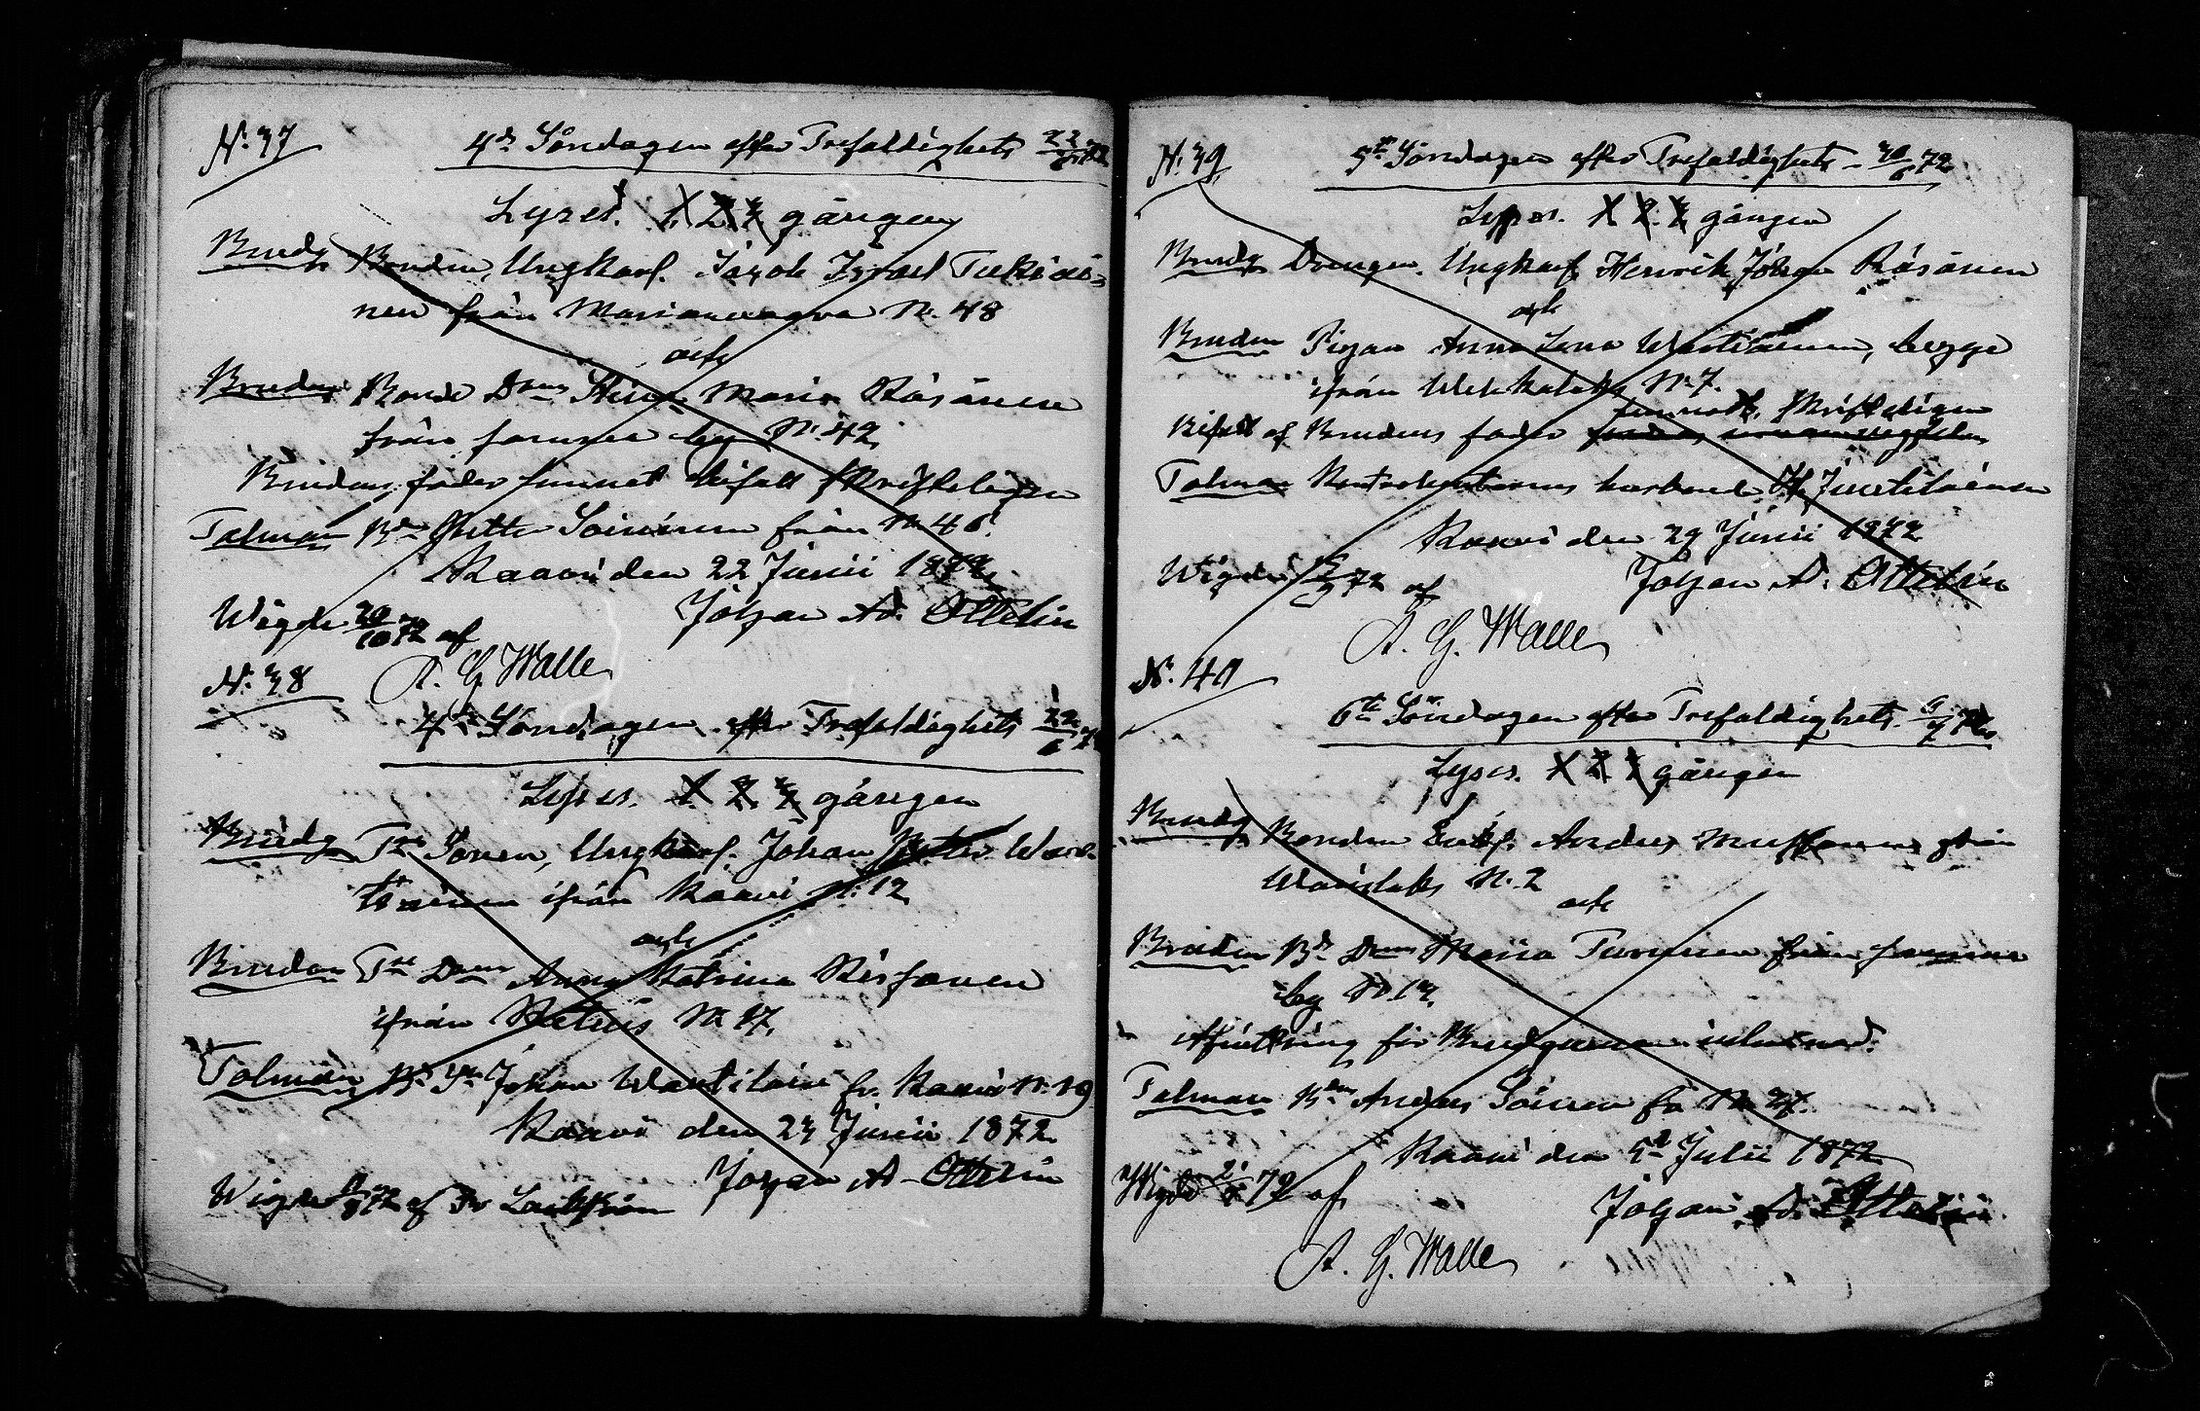 N: 37
4de Söndagen efter Trefaldighets 23/6 72
Lyses. 1. 2. 3 gången
Brudg Bonden, Ungkarl. Jacob Israel Tukiai-
nen från Marianvaara N. 48
och
Bruden Bonde Dottren Stina Maria Räsänen
från samma by N. 42
Brudens fader lemnat bifall skrifteligen
Talman Bn Petter Soininen från N 46.
Kaavi den 22 Junii 1872
Wigde 20/10 72 af Johan Ad. Ottelin
A. G. Walle
N: 38
4de Söndagen efter Trefaldighets 23/6 72
Lyses. 1. 2. 3 gången
Brudg Tre Sonen, Ungkarl. Johan Petter War-
tiainen ifrån Kaavi N: 12
och
Bruden Tre Dottren Anna Katrina Rissanen
ifrån N. 17.
Talman Johan Wartiain fr. Kaavi N. 19
Kaavi den 23 Junii 1872
Johan A. Ottelin
Wigde 72 af
N. 39
5te Söndagen efter Trefaldighets 30/6 72
Lyses. 1. 2. 3 gången
Brudg Drengen, Ungkarl Henrik Johan Räsänen
och
Bruden Pigan Anna Lena Wartiainen, begge
ifrån N. 7.
lemnat skrifteligen
Bifall af Brudens fader
Talman
Kaavi den 29 Junii 1872
Wigde 72 af Johan A. Ottelin
A. G. Walle
N. 40
6te Söndagen efter Trefaldighets 7/7 72
Lyses. 1 2 3 gången
Brudg Bonden Enkl. Andres från
N. 2
och
Bruden Bde Dottren Maria Turunen från samma
by N 13.
Afvittring för Brudgummen inlemnad.
Talman Bn Anders Soinen fr N. 24.
Kaavi den 5te Julii 1872
Wigde 72 af Johan Ad. Ottelin
A. G. Walle